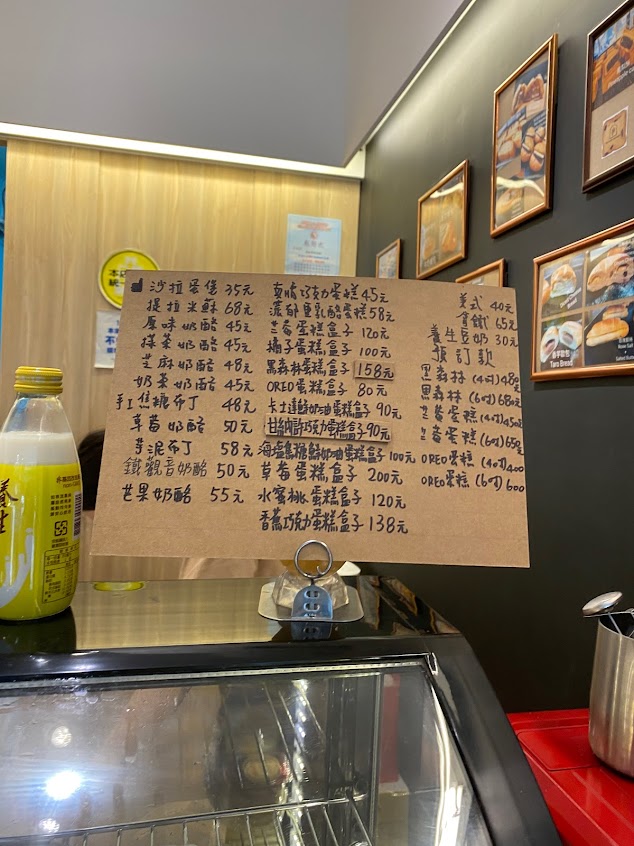 沙拉蛋堡 35元
提拉米酥 68元
原味奶酪 45元
抹茶奶酪 45元
芝麻奶酪 48元
奶茶奶酪 45元
手工焦糖布丁 48元
草莓奶酪 50元
芋泥布丁 58元
鐵觀音奶酪 50元
芒果奶酪 55元
巧克力蛋糕 45元
濃郁重乳酪蛋糕 58元
芒莓蛋糕盒子 120元
橘子蛋糕盒子 100元
黑森林蛋糕盒子 158元
OREO蛋糕盒子 80元
卡士達鮮奶油蛋糕盒子 90元
甘納許巧克力蛋糕盒子 90元
海塩焦糖鮮奶油蛋糕盒子 100元
草莓蛋糕盒子 200元
水蜜桃蛋糕盒子 120元
香蕉巧克力蛋糕盒子 138元
美式 40元
拿鐵 65元
養生豆奶 30元
預訂款
黑森林 (4吋) 480元
黑森林 (6吋) 680元
芒莓蛋糕 (4吋) 450元
芒莓蛋糕 (6吋) 650元
OREO蛋糕 (4吋) 400
OREO蛋糕 (6吋) 600
養生
Taro Bread